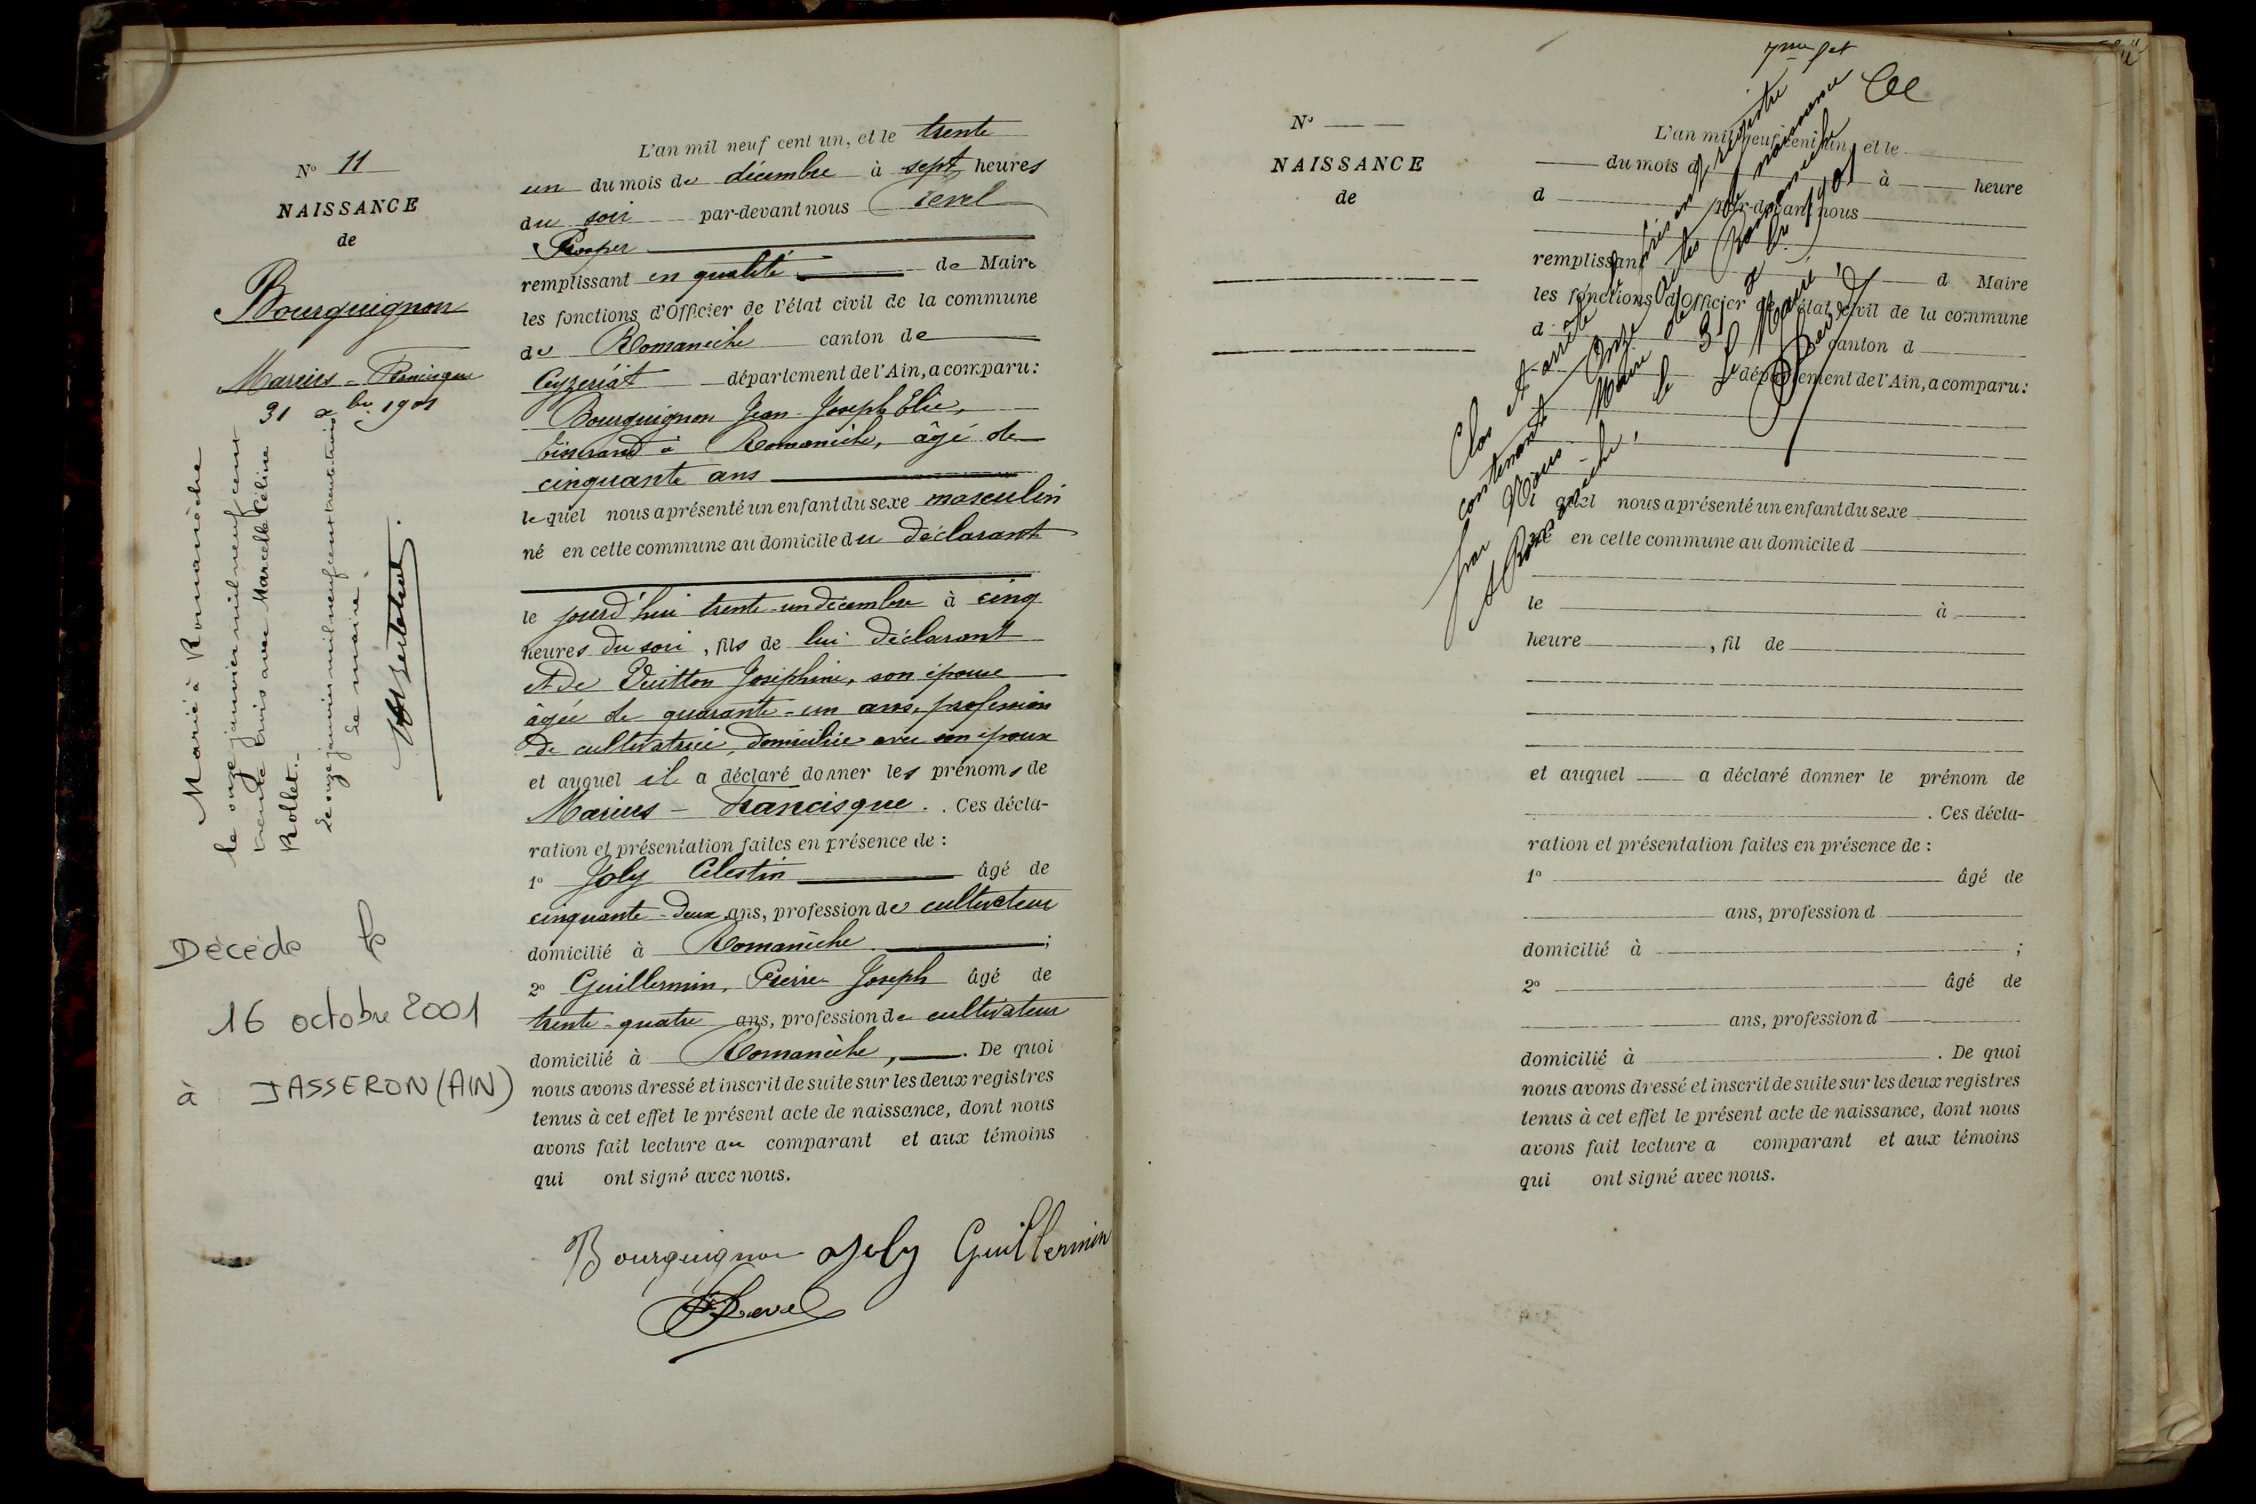 N° 11
NAISSANCE
de
Bourguignon
Marius - Francisque
31 xbre 1901
Marié à Romanèche
le onze janvier mil neuf cent
trente trois avec Marcelle Céline
Rollet.-
Le onze janvier mil neuf cent trente trois
Le maire.
Décédé le
16 octobre 2001
à JASSERON (AIN)
L'an mil neuf cent un, et le trente
un du mois de décembre à sept heures
du soir par-devant nous Revel
Prosper
remplissant en qualité de Maire
les fonctions d'Officier de l'état civil de la commune
de Romanèche canton de
Ceyzériat département de l'Ain, a comparu:
Bourguignon Jean-Joseph Elie,
tisserand à Romanèche, âgé de
cinquante ans
lequel nous a présenté un enfant du sexe masculin
né en cette commune au domicile du déclarant
le jourd'hui trente-un décembre à cinq
heures du soir, fils de lui déclarant
et de Vuitton Joséphine, son épouse
âgée de quarante-un ans, profession
de cultivatrice, domiciliée avec son époux
et auquel il a déclaré donner les prénoms de
Marius - Francisque. . Ces décla-
ration et présentation faites en présence de :
1° Joly Célestin âgé de
cinquante-deux ans, profession de cultivateur
domicilié à Romanèche ;
2° Guillermin, Pierre Joseph âgé de
trente-quatre ans, profession de cultivateur
domicilié à Romanèche, . De quoi
nous avons dressé et inscrit de suite sur les deux registres
tenus à cet effet le présent acte de naissance, dont nous
avons fait lecture au comparant et aux témoins
qui ont signé avec nous.
Bourguignon Joly Guillermin
Revel
N°
NAISSANCE
de
L'an mil neuf cent un, et le
du mois d à heure
d par-devant nous
remplissant d Maire
les fonctions d'Officier de l'état civil de la commune
d canton d
département de l'Ain, a comparu:
l quel nous a présenté un enfant du sexe
né en cette commune au domicile d
le à
heure , fil de
et auquel a déclaré donner le prénom de
. Ces décla-
ration et présentation faites en présence de :
1° âgé de
ans, profession d
domicilié à ;
2° âgé de
ans, profession d
domicilié à . De quoi
nous avons dressé et inscrit de suite sur les deux registres
tenus à cet effet le présent acte de naissance, dont nous
avons fait lecture a comparant et aux témoins
qui ont signé avec nous.
Clos et arrêté le présent registre
contenant onze actes de naissance
par Nous Maire de Romanèche
A Romanèche, le 31 xbre 1901
Le Maire
Revel